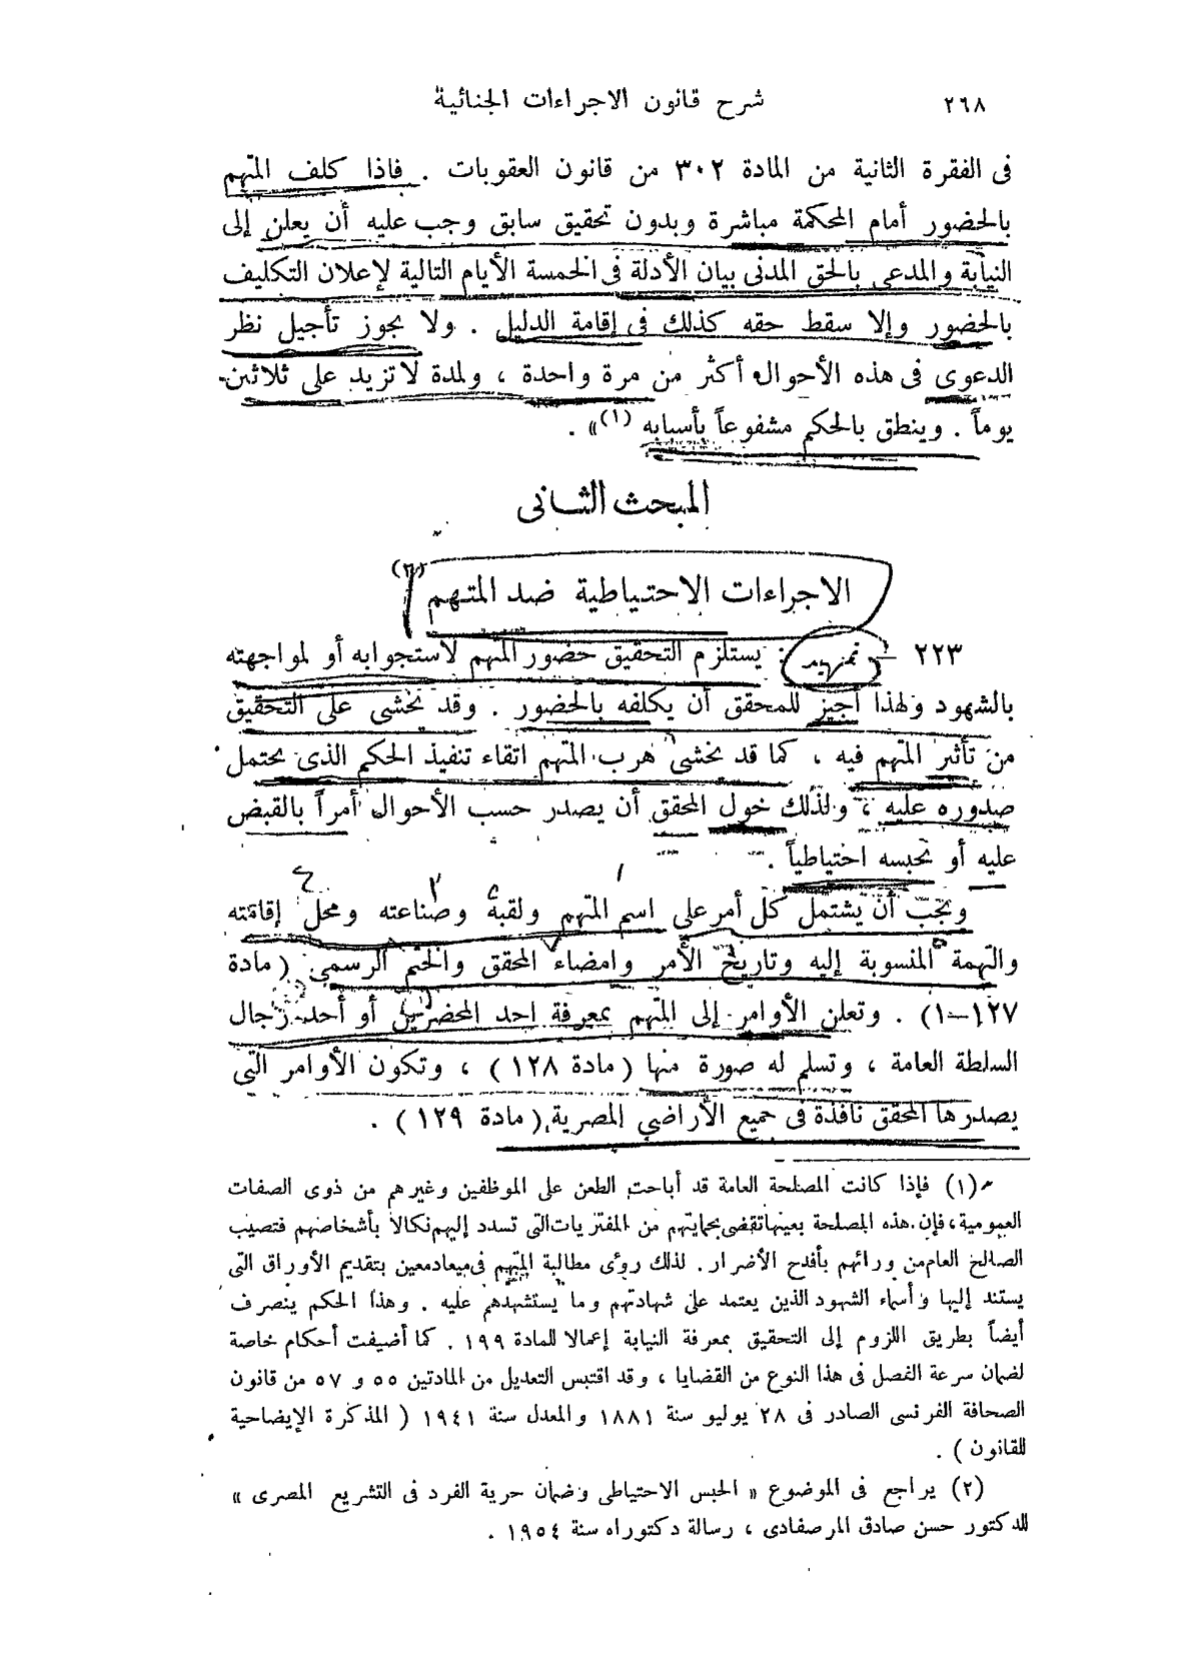 ٢٦٨
شرح قانون الاجراءات الجنائية
فى الفقرة الثانية من المادة ٣٠٢ من قانون العقوبات . فاذا كلف المتهم
بالحضور أمام المحكمة مباشرة وبدون تحقيق سابق وجب عليه أن يعلن إلى
النيابة والمدعى بالحق المدنى بيان الأدلة فى الخمسة الأيام التالية لإعلان التكليف
بالحضور وإلا سقط حقه كذلك فى إقامة الدليل . ولا يجوز تأجيل نظر
الدعوى فى هذه الأحوال أكثر من مرة واحدة ، ولمدة لا تزيد على ثلاثين
يوماً . وينطق بالحكم مشفوعاً بأسبابه (١)» .
المبحث الثانى
الاجراءات الاحتياطية ضد المتهم (٢)
٢٢٣ – تمهيد : يستلزم التحقيق حضور المتهم لاستجوابه أو لمواجهته
بالشهود ولهذا أجيز للمحقق أن يكلفه بالحضور . وقد يخشى على التحقيق
من تأثير المتهم فيه ، كما قد يخشى هرب المتهم اتقاء تنفيذ الحكم الذى يحتمل
صدوره عليه ، ولذلك خول المحقق أن يصدر حسب الأحوال أمراً بالقبض
عليه أو بحبسه احتياطياً .
ويجب أن يشتمل كل أمر على اسم المتهم ولقبه وصناعته ومحل إقامته
والتهمة المنسوبة إليه وتاريخ الأمر وامضاء المحقق والختم الرسمى ( مادة
١٢٧–١) . وتعلن الأوامر إلى المتهم بمعرفة احد المحضرين أو أحد رجال
السلطة العامة ، وتسلم له صورة منها ( مادة ١٢٨ ) ، وتكون الأوامر التى
يصدرها المحقق نافذة فى جميع الأراضى المصرية ( مادة ١٢٩ ) .
(١) فإذا كانت المصلحة العامة قد أباحت الطعن على الموظفين وغيرهم من ذوى الصفات
العمومية ، فإن هذه المصلحة بعينها تقضى بحمايتهم من المفتريات التى تسدد إليهم نكالا بأشخاصهم فتصيب
الصالح العام من ورائهم بأفدح الأضرار . لذلك روئى مطالبة المتهم فى ميعاد معين بتقديم الأوراق التى
يستند إليها وأسماء الشهود الذين يعتمد على شهادتهم وما يستشهدهم عليه . وهذا الحكم ينصرف
أيضاً بطريق اللزوم إلى التحقيق بمعرفة النيابة إعمالا للمادة ١٩٩ . كما أضيفت أحكام خاصة
لضمان سرعة الفصل فى هذا النوع من القضايا ، وقد اقتبس التعديل من المادتين ٥٥ و ٥٧ من قانون
الصحافة الفرنسى الصادر فى ٢٨ يوليو سنة ١٨٨١ والمعدل سنة ١٩٤١ ( المذكرة الإيضاحية
للقانون ) .
(٢) يراجع فى الموضوع « الحبس الاحتياطى وضمان حرية الفرد فى التشريع المصرى »
للدكتور حسن صادق المرصفاوى ، رسالة دكتوراه سنة ١٩٥٤ .